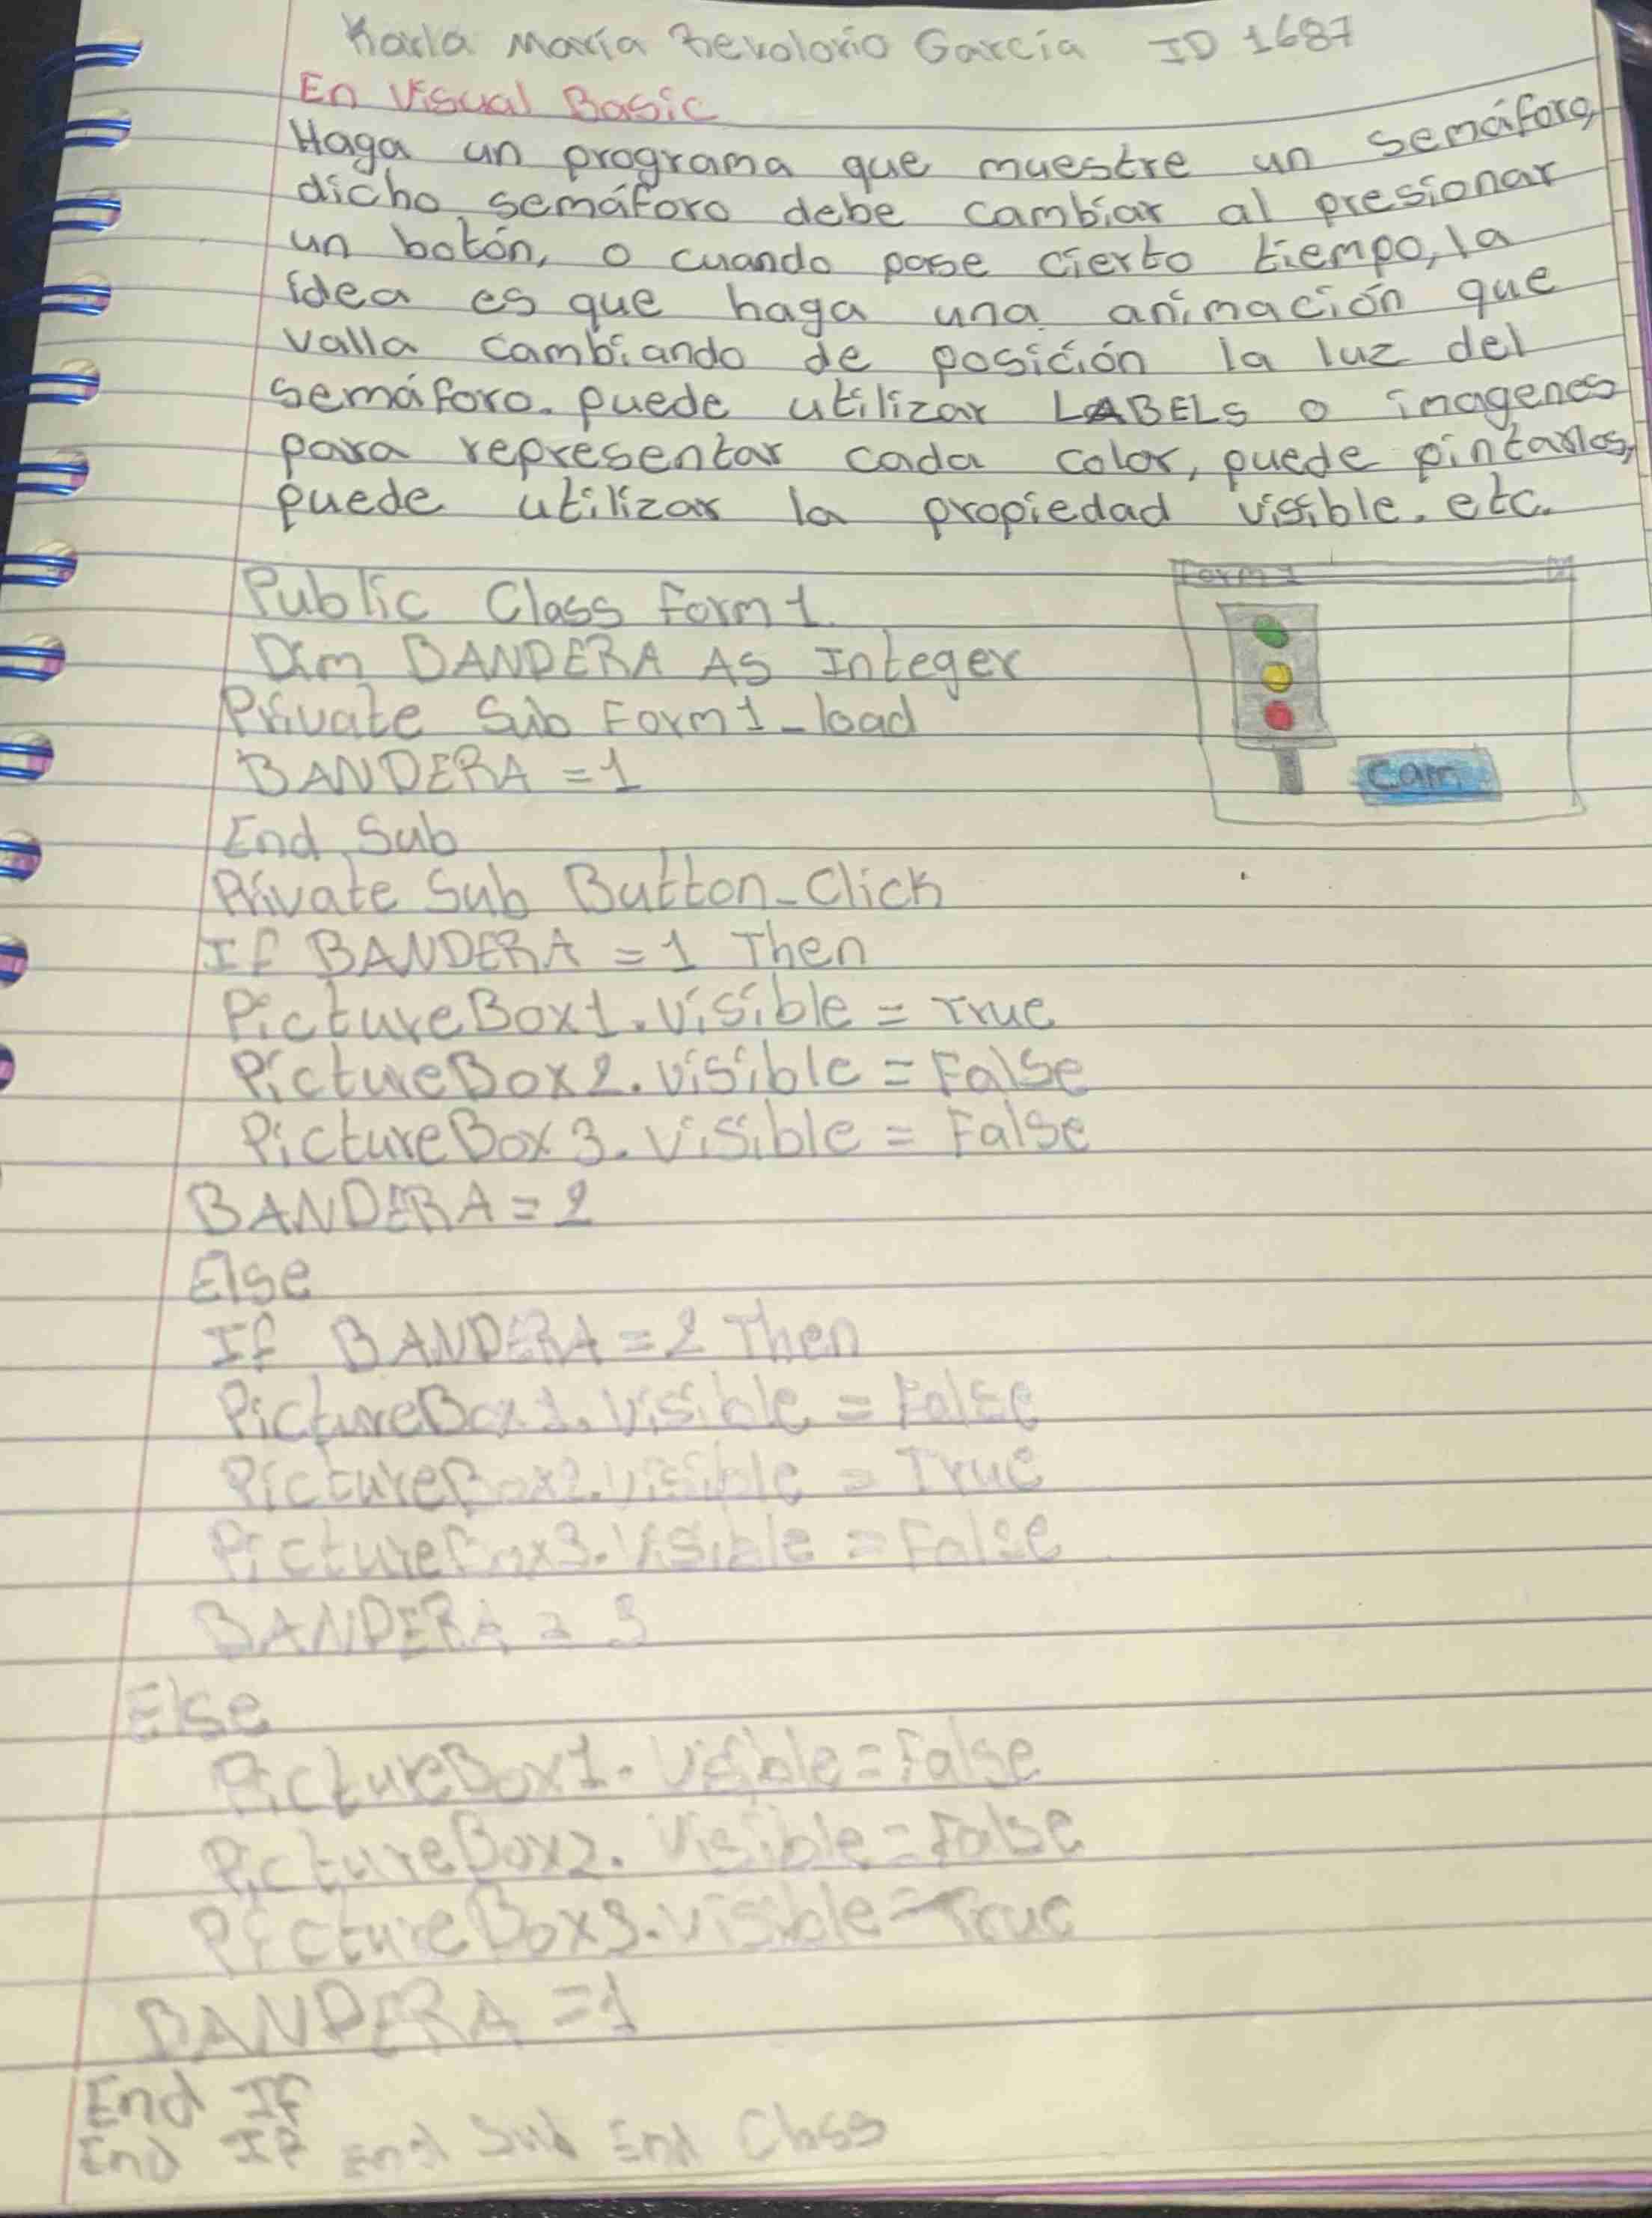 Karla María Revolorio García ID 1687
En Visual Basic
Haga un programa que muestre un semáforo,
dicho semáforo debe cambiar al presionar
un botón, o cuando pase cierto tiempo, la
idea es que haga una animación que
valla cambiando de posición la luz del
semáforo. puede utilizar LABELs o imagenes
para representar cada color, puede pintarlos,
puede utilizar la propiedad visible. etc.
Form 1
Public Class Form 1
Dim BANDERA As Integer
Private Sub Form1_load
BANDERA = 1
Cam
End Sub
Private Sub Button_Click
If BANDERA = 1 Then
PictureBox1.Visible = True
PictureBox2.visible = False
PictureBox3.visible = False
BANDERA = 2
Else
If BANDERA = 2 Then
PictureBox1.Visible = False
PictureBox2.Visible = True
PictureBox3.Visible = False
BANDERA = 3
Else
PictureBox1.Visible = False
PictureBox2.Visible = False
PictureBox3.visible = True
BANDERA = 1
End If
End If End Sub End Class